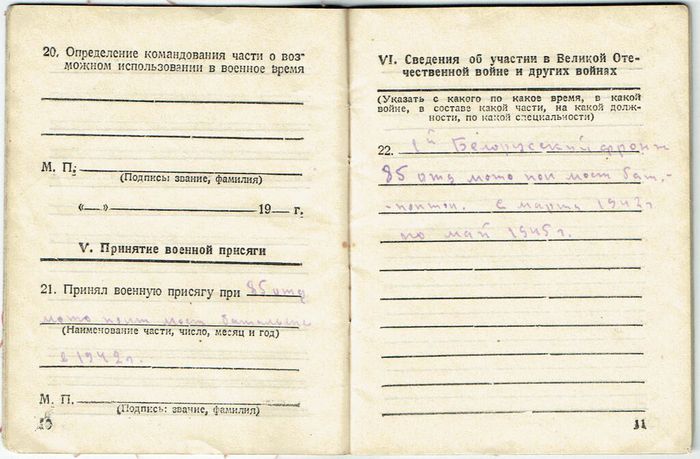 20. Определение командования части о воз-
можном использовании в военное время
М. П.
(Подпись: звание, фамилия)
«—» 19— г.
V. Принятие военной присяги
21. Принял военную присягу при 85 отд
мото понт мост батальоне
(Наименование части, число, месяц и год)
в 1942 г.
М. П.
(Подпись: звание, фамилия)
10
VI. Сведения об участии в Великой Оте-
чественной войне и других войнах
(Указать с какого по какое время, в какой
войне, в составе какой части, на какой долж-
ности, по какой специальности)
22. 1й Белорусский фронт
85 отд мото пон мост бат.
с марта 1942 г
по май 1945 г.
11